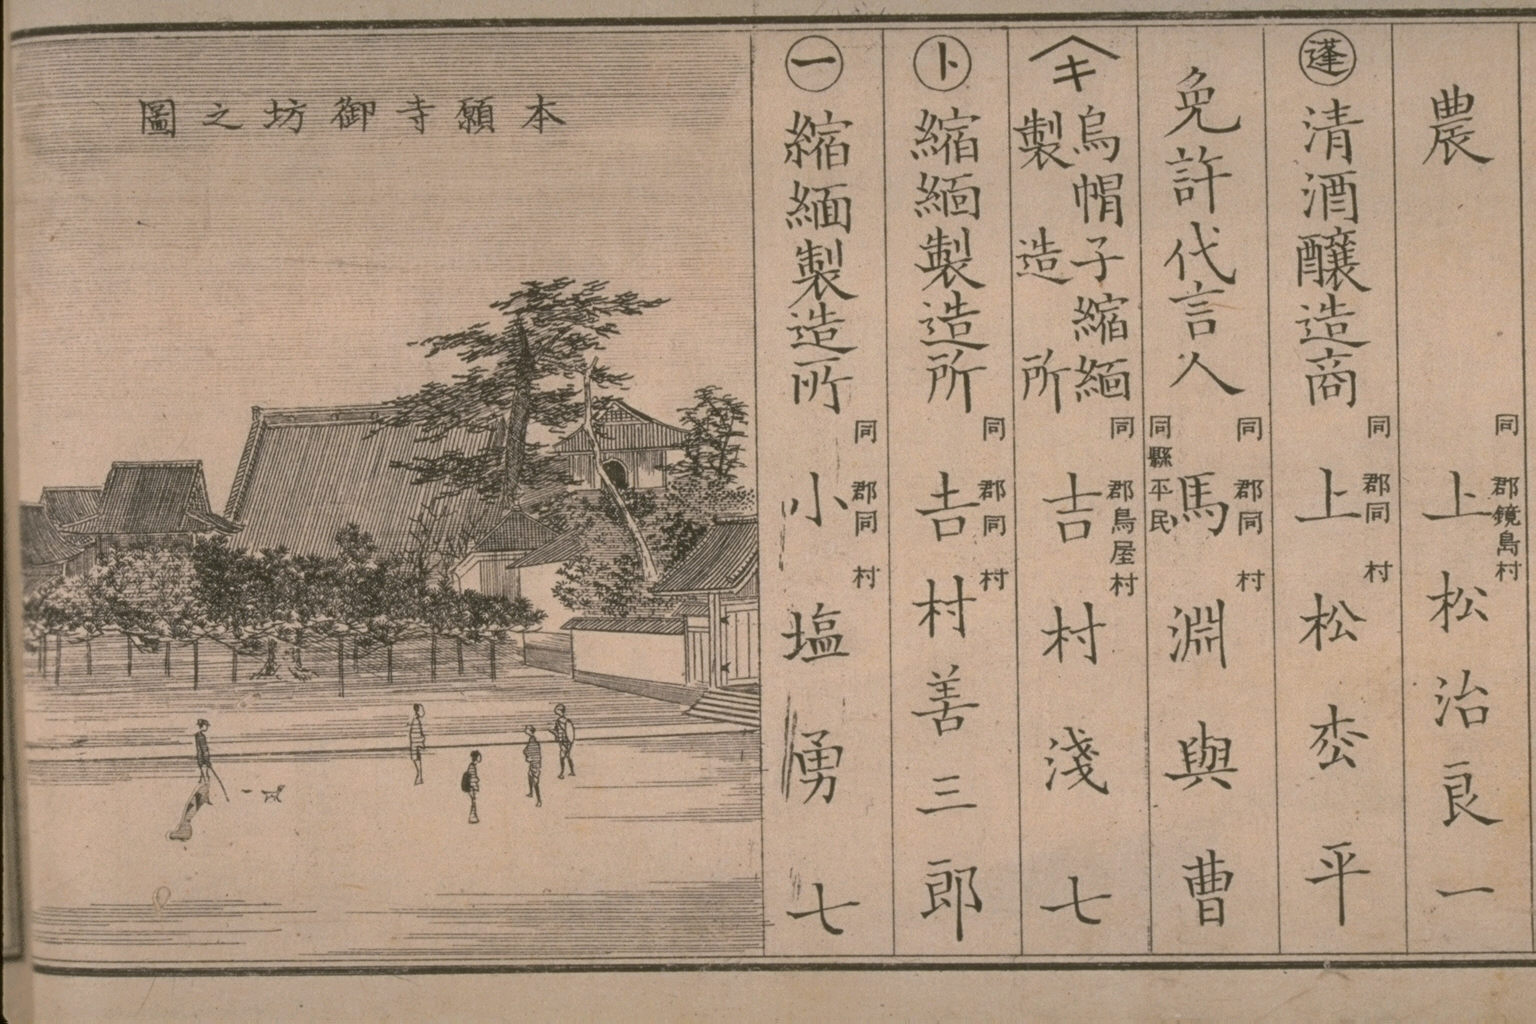 農
同郡鏡島村
上松治良一
蓬
清酒醸造商
同郡同村
上松枩平
免許代言人
同郡同村
同縣平民
馬淵與曹
キ
烏帽子縮緬
製造所
同郡鳥屋村
吉村淺七
ト
縮緬製造所
同郡同村
吉村善三郎
一
縮緬製造所
同郡同村
小塩勇七
本願寺御坊之圖